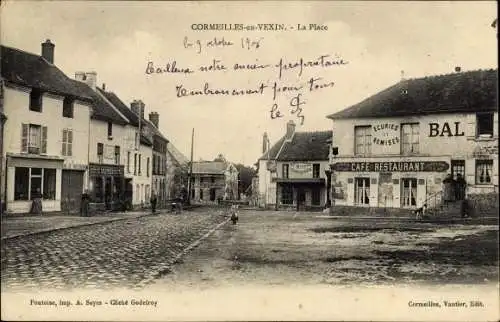 CORMEILLES-en-VEXIN. - La Place
le 9 octobre 1905
notre ancien propriétaire
pour tous
ECURIES
ET
REMISES
BAL
CAFÉ RESTAURANT
Pontoise, imp. A. Seyes - Cliché Godefroy
Cormeilles, Vautier, Edit.